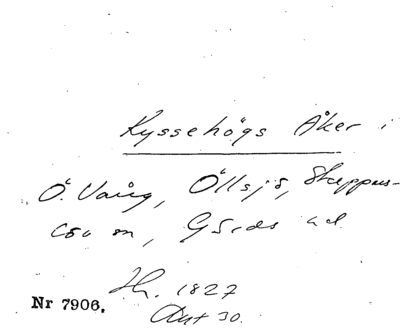 Kyssehögs Åker i
Ö. Vång, Öllsjö, Skeppars-
löv sn, Gärds hd.
Hr. 1827
Akt 30.
Nr 7906.